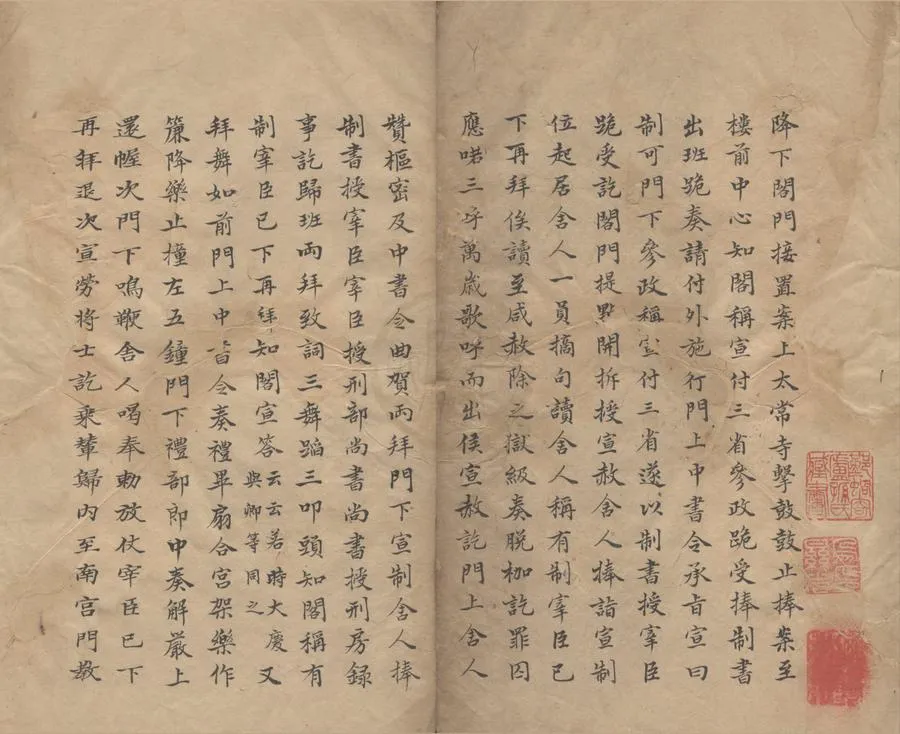 降下閣門接置案上太常寺擊鼓鼓止捧案至
樓前中心知閣稱宣付三省參政跪受捧制書
出班跪奏請付外施行門上中書令承旨宣曰
制可門下參政稱宣付三省遂以制書授宰臣
跪受訖閣門提點開拆授宣赦舍人捧詣宣制
位起居舍人一員摘句讀舍人稱有制宰臣已
下再拜俟讀至咸赦除之獄級奏脫枷訖罪囚
應喏三呼萬歲歌呼而出侯宣赦訖門上舍人
贊樞密及中書令曲賀兩拜門下宣制舍人捧
制書授宰臣宰臣授刑部尚書尚書授刑房錄
事訖歸班兩拜致詞三舞蹈三叩頭知閣稱有
制宰臣已下再拜知閣宣答云云若時大慶與卿等同之又
拜舞如前門上中書令奏禮畢扇合宮架樂作
簾降樂止撞左五鐘門下禮部郎中奏解嚴上
還幄次門下鳴鞭舍人喝奉勅放仗宰臣已下
再拜退次宣勞將士訖乘輦歸內至南宮門教